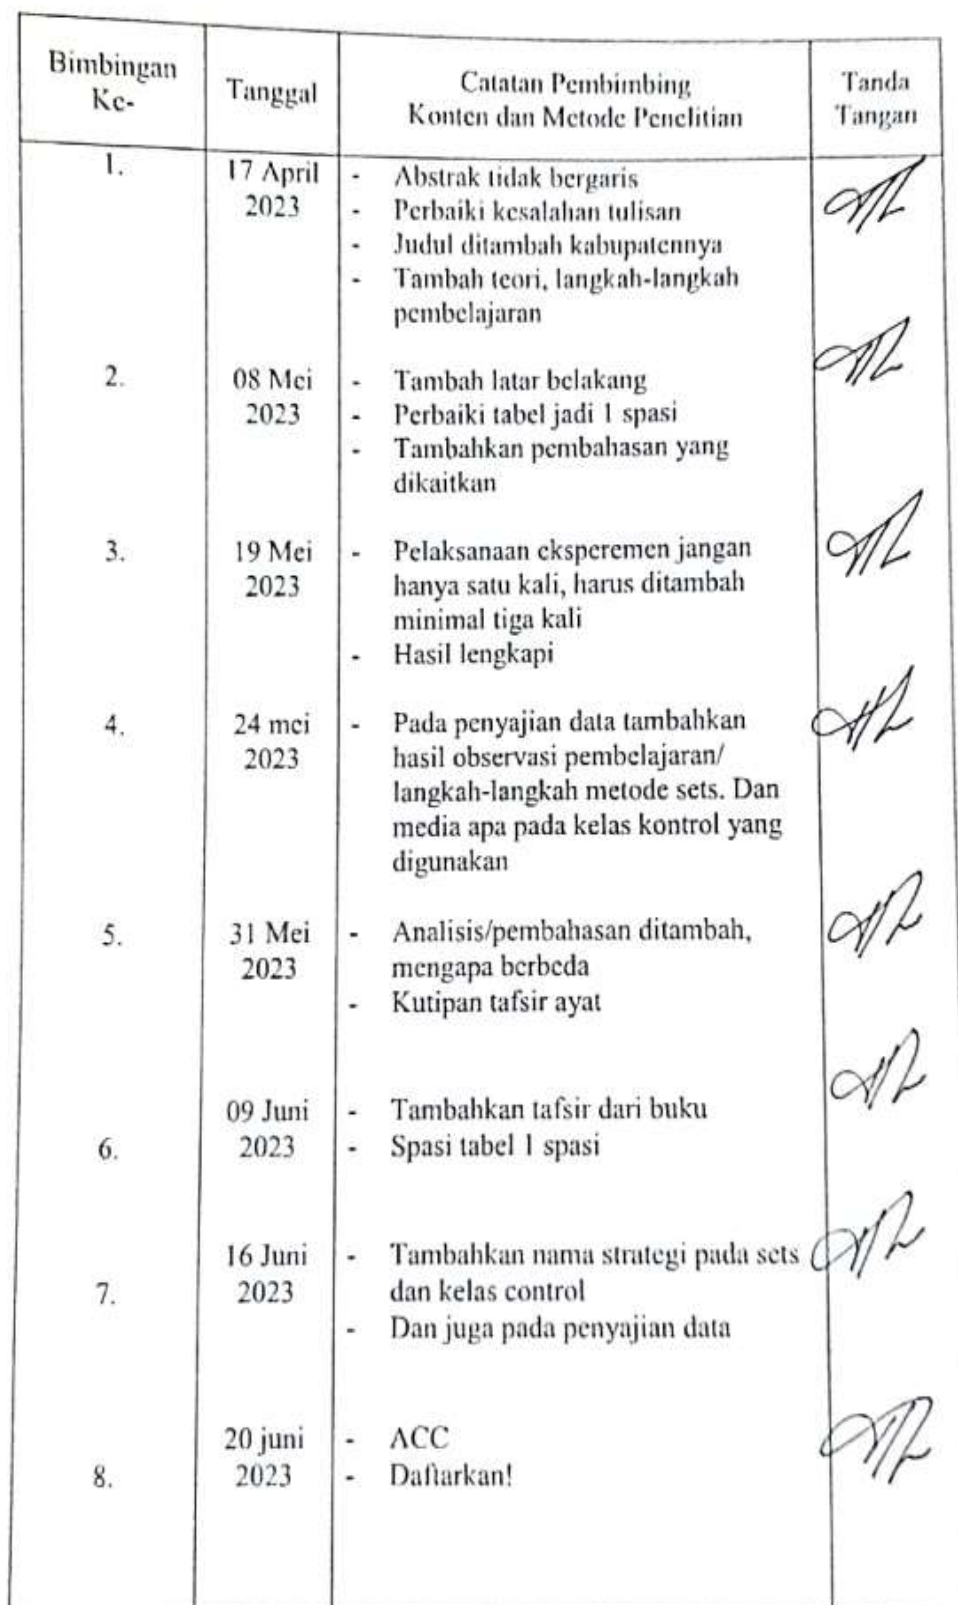 Bimbingan Ke- Tanggal Catatan Pembimbing Konten dan Metode Penelitian Tanda Tangan
1. 17 April 2023
- Abstrak tidak bergaris
- Perbaiki kesalahan tulisan
- Judul ditambah kabupatennya
- Tambah teori, langkah-langkah
pembelajaran
2. 08 Mei 2023
- Tambah latar belakang
- Perbaiki tabel jadi 1 spasi
- Tambahkan pembahasan yang
dikaitkan
3. 19 Mei 2023
- Pelaksanaan eksperemen jangan
hanya satu kali, harus ditambah
minimal tiga kali
- Hasil lengkapi
4. 24 mei 2023
- Pada penyajian data tambahkan
hasil observasi pembelajaran/
langkah-langkah metode sets. Dan
media apa pada kelas kontrol yang
digunakan
5. 31 Mei 2023
- Analisis/pembahasan ditambah,
mengapa berbeda
- Kutipan tafsir ayat
6. 09 Juni 2023
- Tambahkan tafsir dari buku
- Spasi tabel 1 spasi
7. 16 Juni 2023
- Tambahkan nama strategi pada sets
dan kelas control
- Dan juga pada penyajian data
8. 20 juni 2023
- ACC
- Daftarkan!